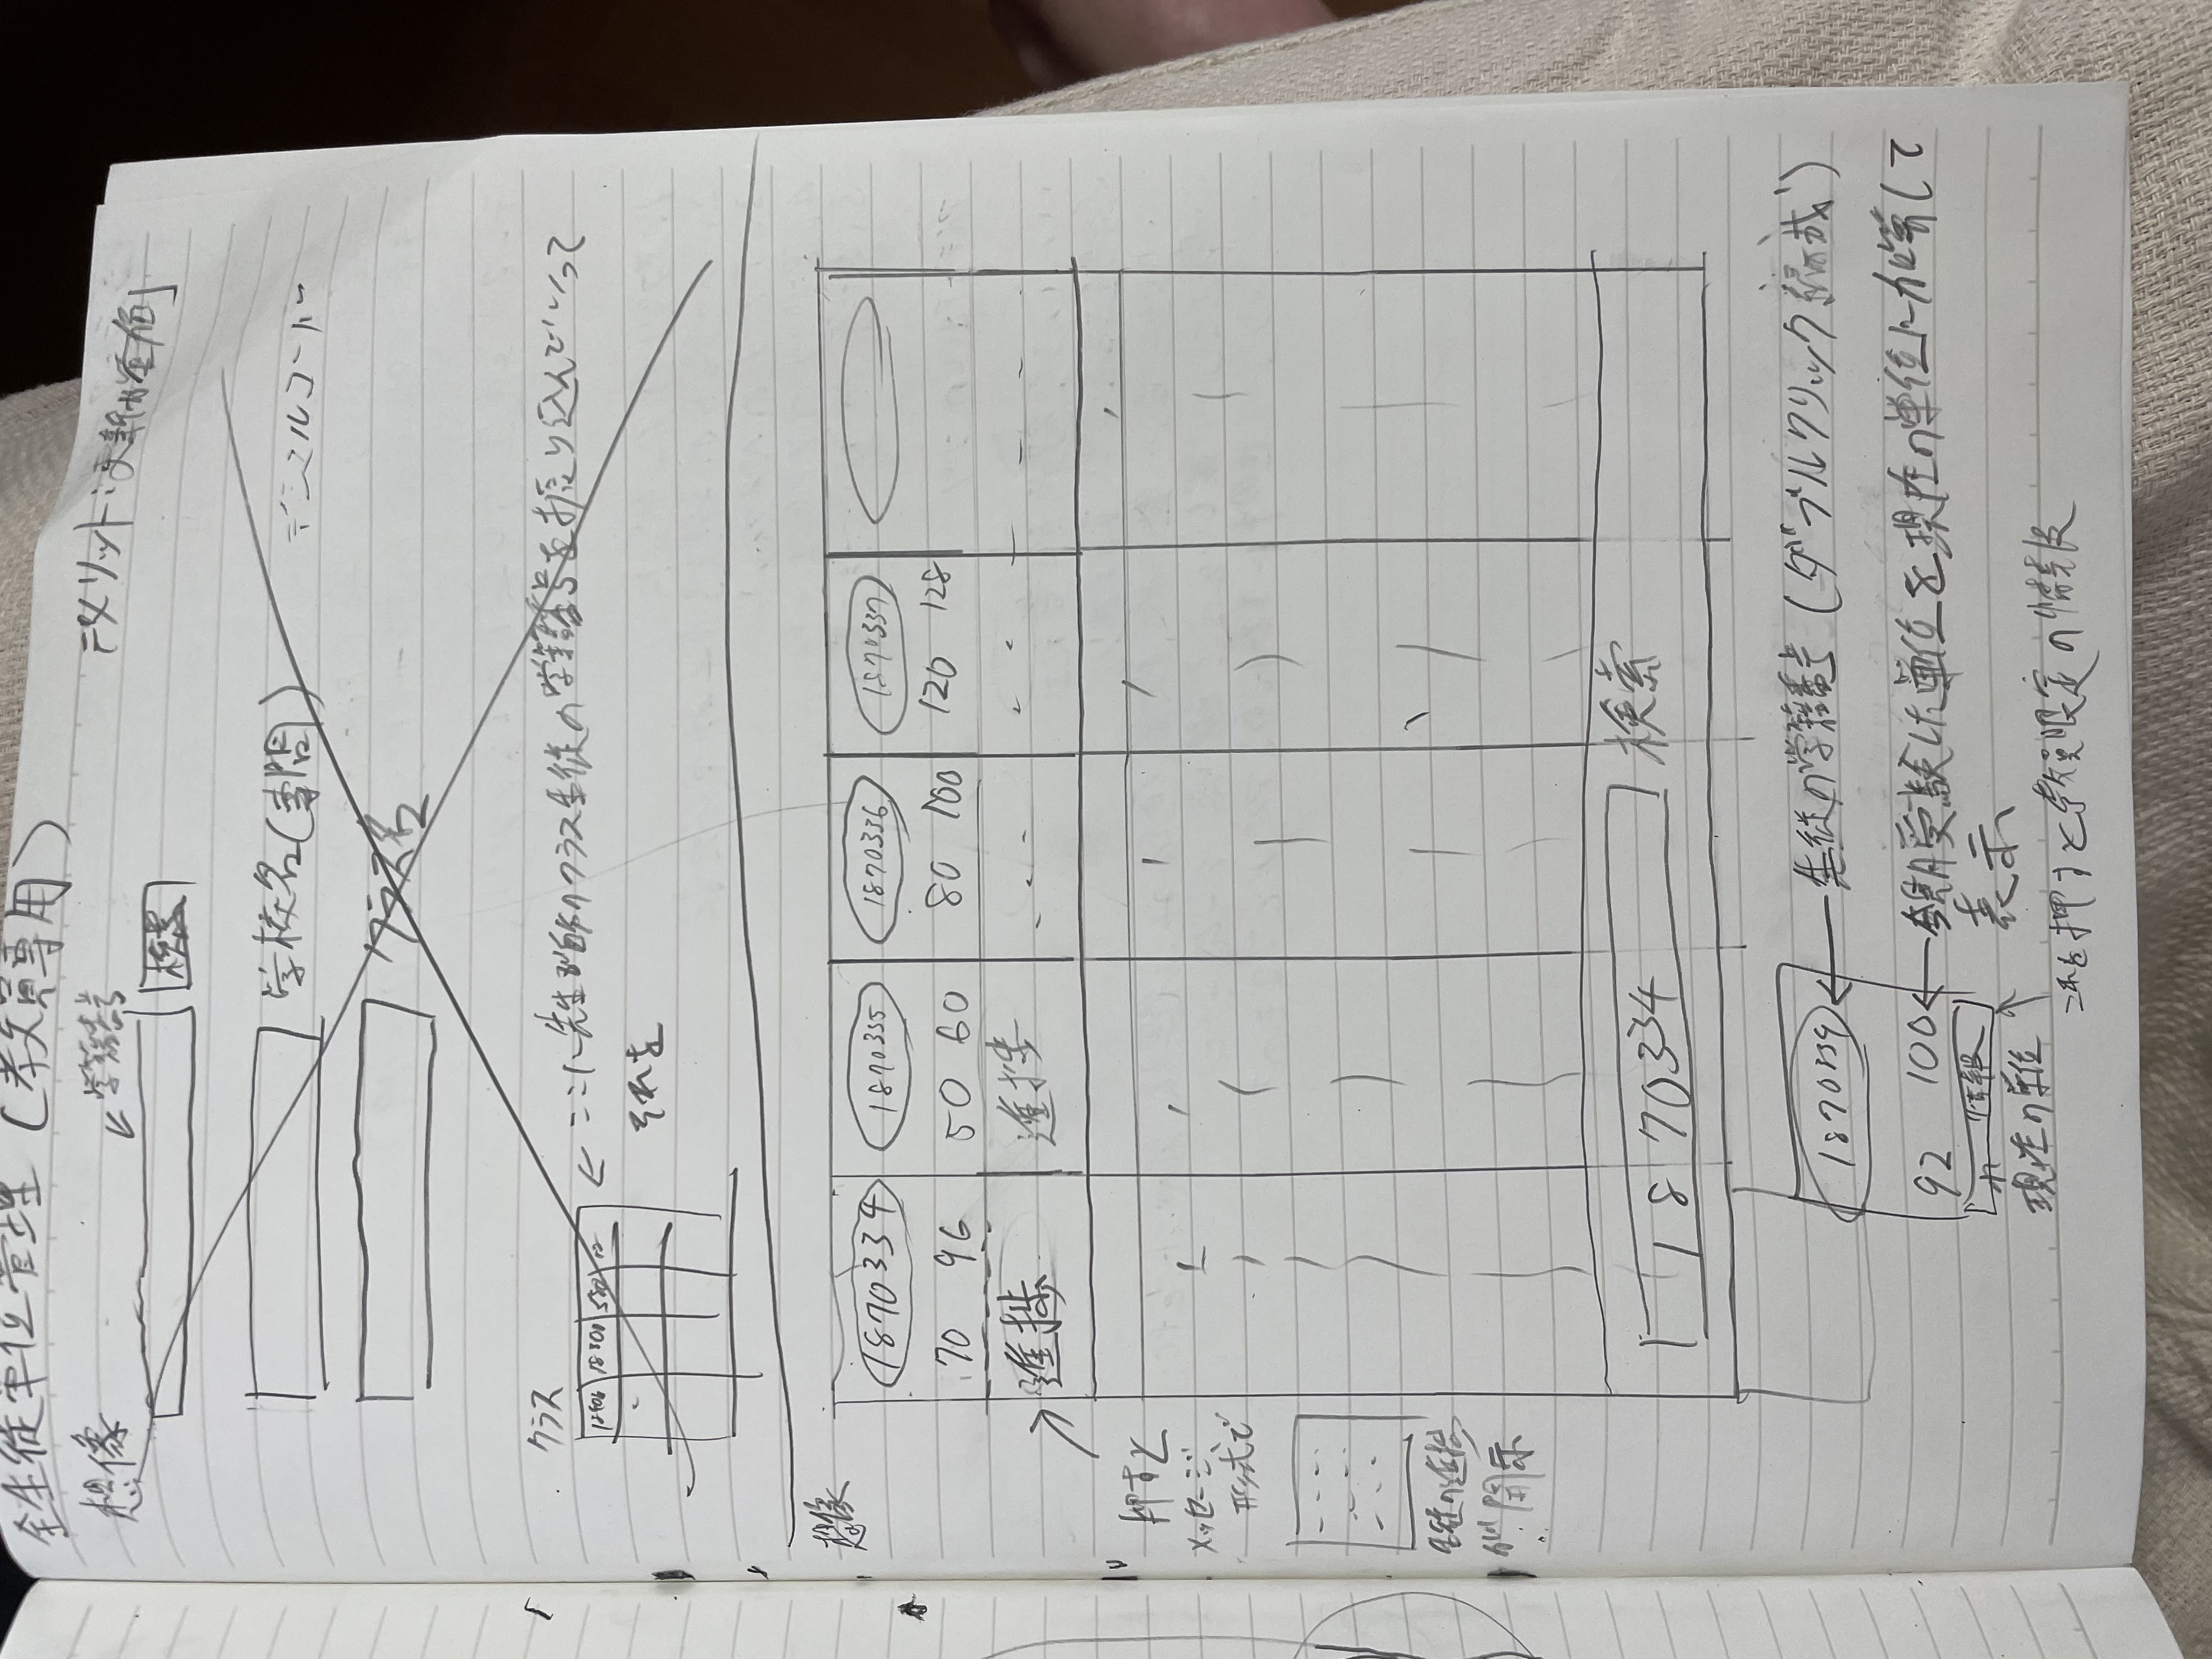 全生徒単位管理(教員専用)
想像
学籍番号
デメリット:更新が面倒
検索
学校名(専門)
クラス名
クラス
12406 18300
ここに先生が自分のクラス生徒の学籍番号を振り込んでいって
それを
想像
1870334 1870335 1870336 1870337
70 96 50 60 80 100 120 128
進捗 進捗
押すと
メッセージ
形式で
生徒の進捗
が開示
1870334 検索
1870334
生徒の学籍番号(ダブルクリック編成)
92 100
今期受験した単位を現在の単位に加算して
表示
情報
現在の単位
これを押すと教員限定の情報